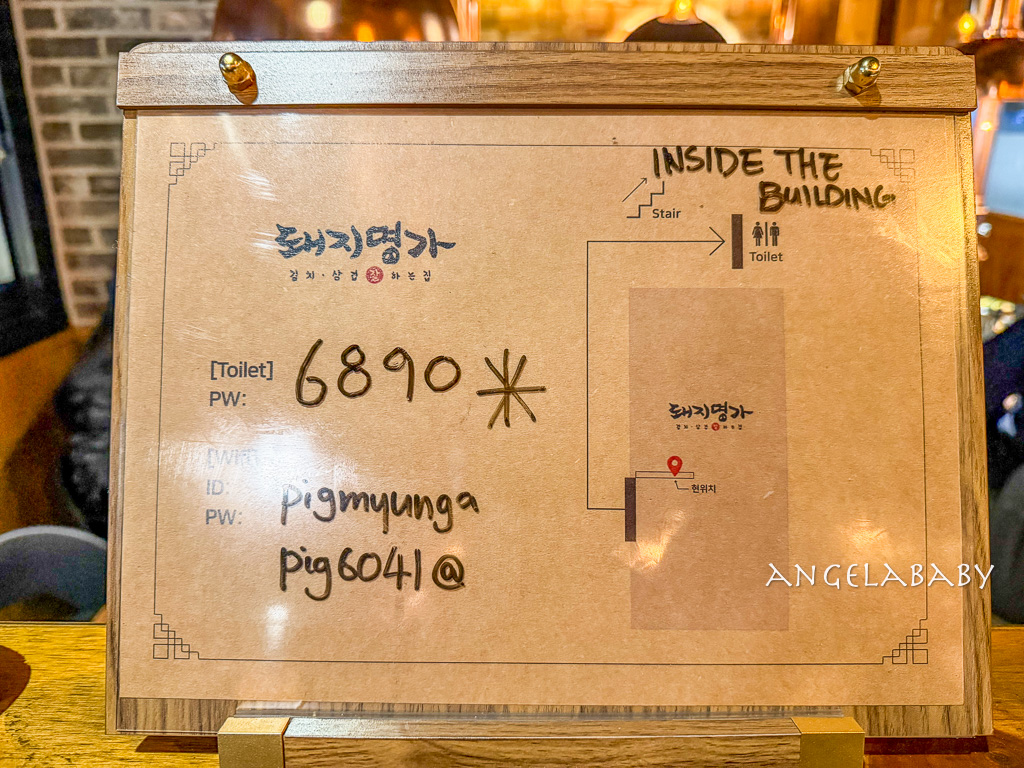 INSIDE THE
BUILDING.
Stair
Toilet
돼지명가
김치·삼겹 잘 하는집
[Toilet]
PW: 6890*
[Wifi]
ID: pigmyunga
PW: pig6041@
돼지명가
김치·삼겹 잘 하는집
현위치
ANGELABABY